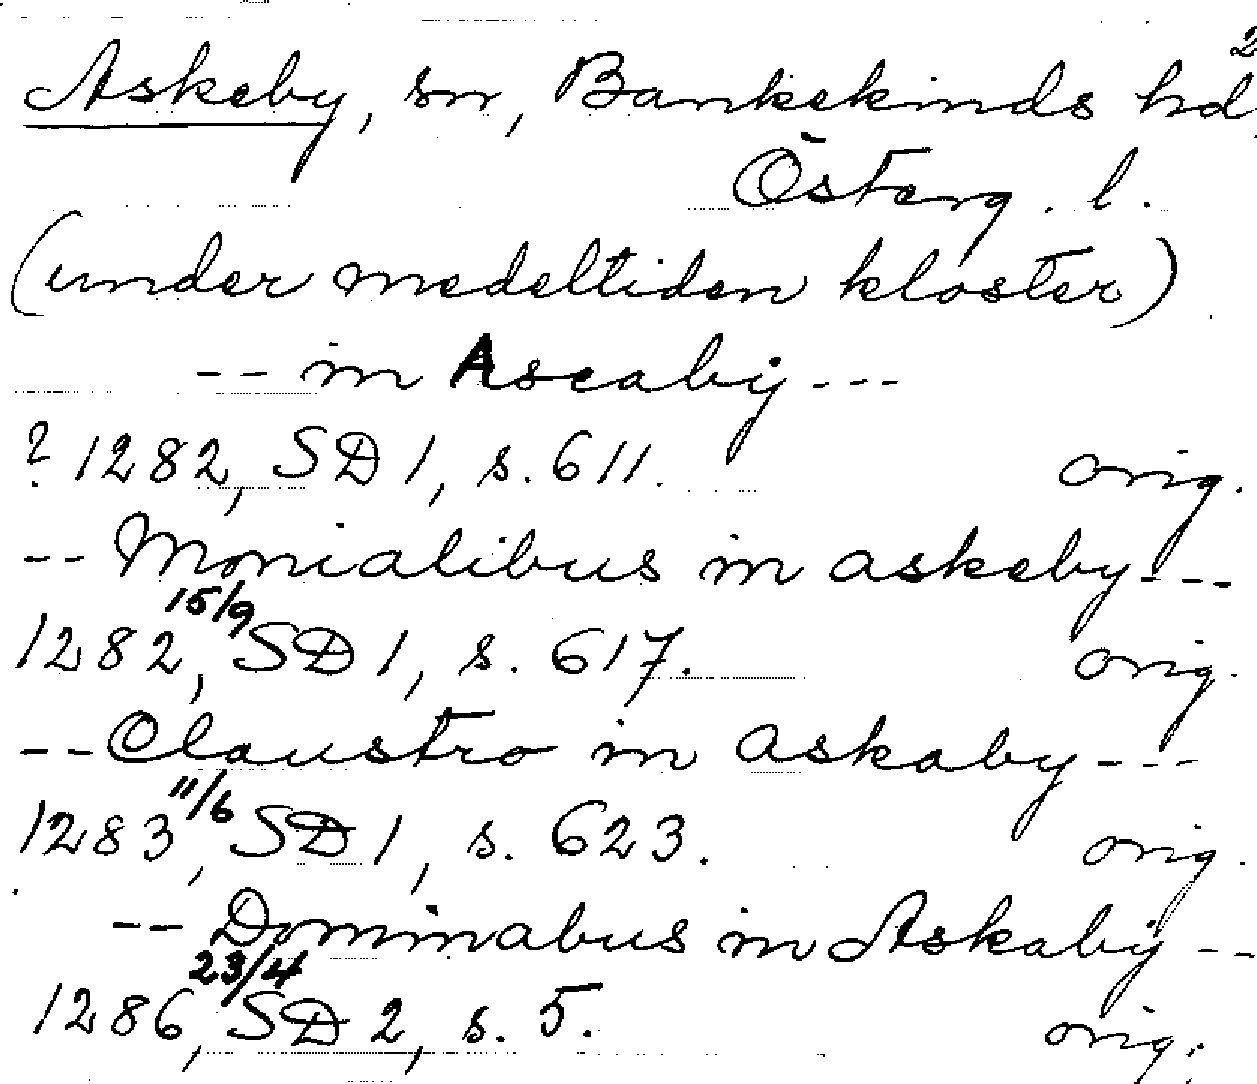 2
Askeby, sn, Bankekinds hd
Österg. l.
(under medeltiden kloster)
-- in Ascaby ---
? 1282, SD 1, s. 611. orig.
-- Monialibus in askeby ---
1282 15/9, SD 1, s. 617. orig.
-- Claustro in askaby ---
1283 11/6, SD 1, s. 623. orig.
-- Dominabus in Askaby --
1286 23/4, SD 2, s. 5. orig.